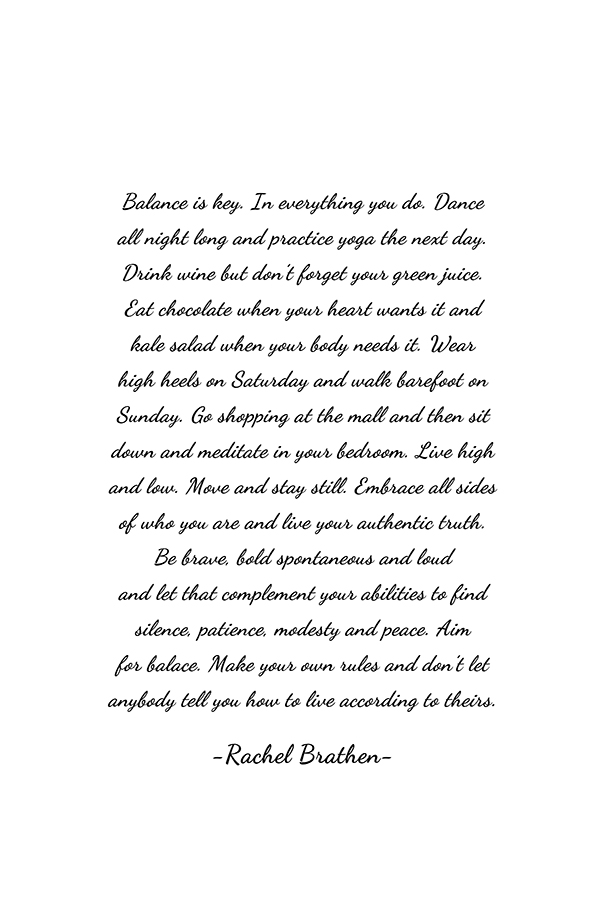 Balance is key. In everything you do. Dance
all night long and practice yoga the next day.
Drink wine but don't forget your green juice.
Eat chocolate when your heart wants it and
kale salad when your body needs it. Wear
high heels on Saturday and walk barefoot on
Sunday. Go shopping at the mall and then sit
down and meditate in your bedroom. Live high
and low. Move and stay still. Embrace all sides
of who you are and live your authentic truth.
Be brave, bold spontaneous and loud
and let that complement your abilities to find
silence, patience, modesty and peace. Aim
for balace. Make your own rules and don't let
anybody tell you how to live according to theirs.
-Rachel Brathen-